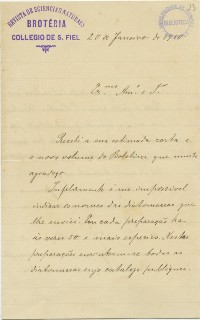 REVISTA DE SCIENCIAS NATURAES
BROTÉRIA
COLLEGIO DE S. FIEL
20 de Janeiro de 1910
Ex.mo Am.o e S.r
Recebi a sua estimada carta e
o novo volume do Boletim que muito
agradeço.
Infelizmente é-me impossivel
indicar os nomes das diatomaceas que
lhe enviei. Em cada preparação ha
ás vezes 50 e mais especies. Nestas
preparações encontram-se todas as
diatomaceas cujo catalogo publiquei.